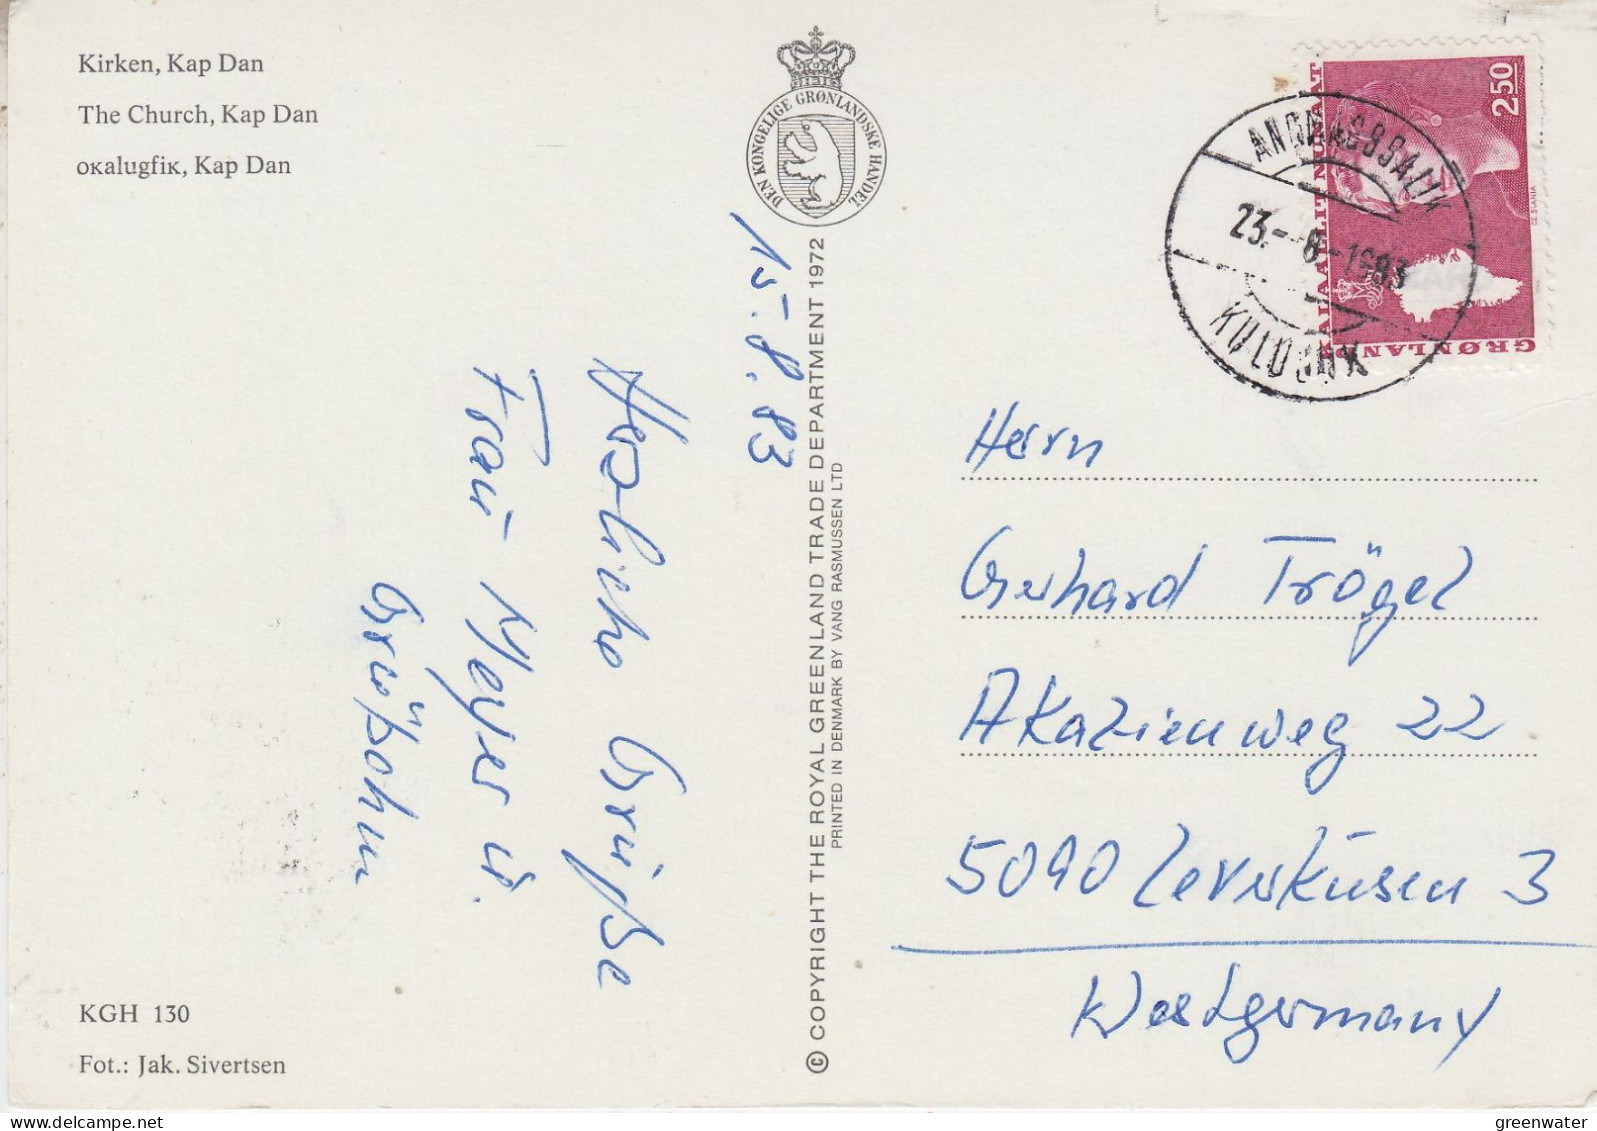 Kirken, Kap Dan
The Church, Kap Dan
oĸalugfiĸ, Kap Dan
DEN KONGELIGE GRØNLANDSKE HANDEL
15.8.83
Herzliche Grüße
Frau Meyer u.
© COPYRIGHT THE ROYAL GREENLAND TRADE DEPARTMENT 1972
PRINTED IN DENMARK BY VANG RASMUSSEN LTD
KGH 130
Fot.: Jak. Sivertsen
2.50
KALAALLIT NUNAAT
GRØNLAND
CZ. SLANIA
ANGMAGSSALIK
23.-8-1983
KULUSUK
Herrn
Gerhard Trögel
Akazienweg 22
5090 Leverkusen 3
Westgermany
greenwater